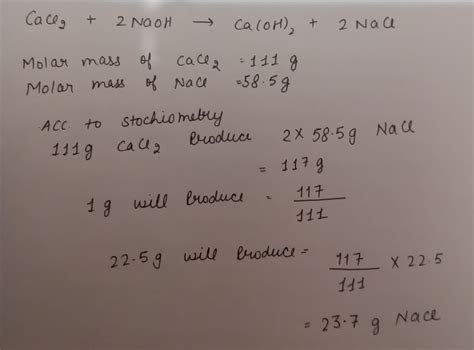 CaCl2 + 2 NaOH → Ca(OH)2 + 2 NaCl
Molar mass of CaCl2 = 111 g
Molar mass of NaCl = 58.5g
ACC. to stochiometry
111g CaCl2 Produce 2 X 58.5g NaCl
= 117 g
1 g will Produce = 117/111
22.5 g will Produce = 117/111 X 22.5
= 23.7 g NaCl